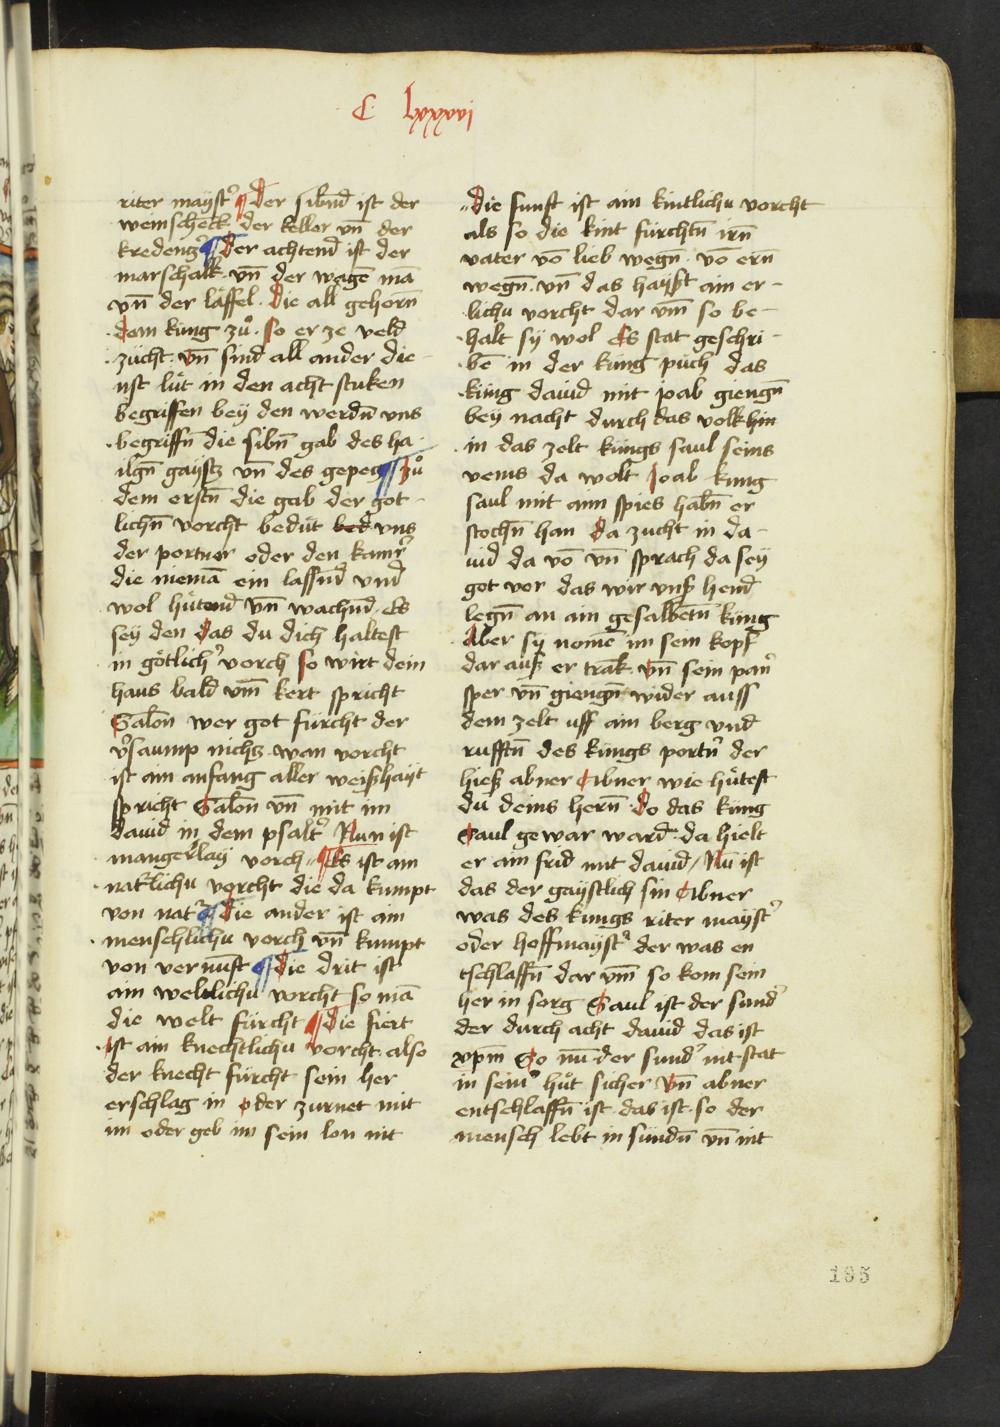 C lxxxvi
riter mayst᷑ ¶ Der sibnd ist der
weinscheck der keller vn̄ der
kredentz᷑ ¶ Der achtend ist der
marschalk vn̄ der wagē mā
vn̄ der läffel. Die all gehorn̄
dem kung zů. so er ze veld
zücht. Vn̄ sind all ander die-
nst lüt in den acht stuken
begriffen bey den werdn̄ vns
begriffn̄ die sibn̄ gab des ha-
ilgn̄ gaystz vn̄ des gepetz ¶ Zů
dem erstn̄ die gab der got-
lichn̄ vorcht bedüt vns
der portner oder den kamr᷑
die niemā ein lassnd vnd
wol hütend vn̄ wachnd. Es
sey den das du dich haltest
in götlich᷑ vorch so wirt dein
haus bald vm̄ kert spricht
Salon̄ wer got fürcht der
v᷑saump nichtz. wan vorcht
ist ain anfang aller weißhayt
spricht Salon̄ vn̄ mit im
dauid in dem psalt᷑ Nun ist
mangerlay vorch ¶ Es ist ain
natlichu vorcht die da kumpt
von nat᷑ ¶ Die ander ist ain
menschlichu vorch vn̄ kumpt
von vernunft ¶ Die drit ist
ain weltlichu vorcht so mā
die welt fürcht ¶ Die fiert
ist ain knechtlichu vorcht. also
der knecht fürcht sein her
erschlag in oder zurnet mit
im oder geb im sein lon nit
Die funft ist ain kintlichu vorcht
als so die kint fürchtn̄ irn̄
vater vō lieb wegn̄. vō ern̄
wegn̄. vn̄ das hayßt ain er-
lichu vorcht dar vm̄ so be-
halt sy wol Es stat geschri-
bē in der kung puch das
küng dauid mit joab giengn̄
bey nacht durch das volk hin
in das zelt küngs saul seins
veins da wolt Joab kung
saul mit aim spies habn̄ er
stochn̄ han Da zucht in da-
uid da vō vn̄ sprach da sey
got vor das wir vnß hend
legn̄ an ain gesalbetn̄ küng
Aber sy nomē im sein kopf
dar auß er trak. Vn̄ sein pan᷑
sper vn̄ giengn̄ wider auss
dem zelt uff ain berg vnd
rufftn̄ des küngs portn᷑ der
hieß abner Abner wie hütest
du deins hern̄ Do das küng
Saul gewar ward. da hielt
er ain frid mit dauid / Nū ist
das der gaystlich sin Abner
was des kungs riter mayst᷑
oder hoffmayst᷑ der was en
tschlaffn̄ dar vm̄ so kom sein
her in sorg Saul ist der sund᷑
der durch acht dauid das ist
xpm̄ So nū der sund᷑ nit stat
in sein᷑ hůt sicher Vn̄ abner
entschlaffn̄ ist. das ist. so der
mensch lebt in sündn̄ vn̄ nit
195